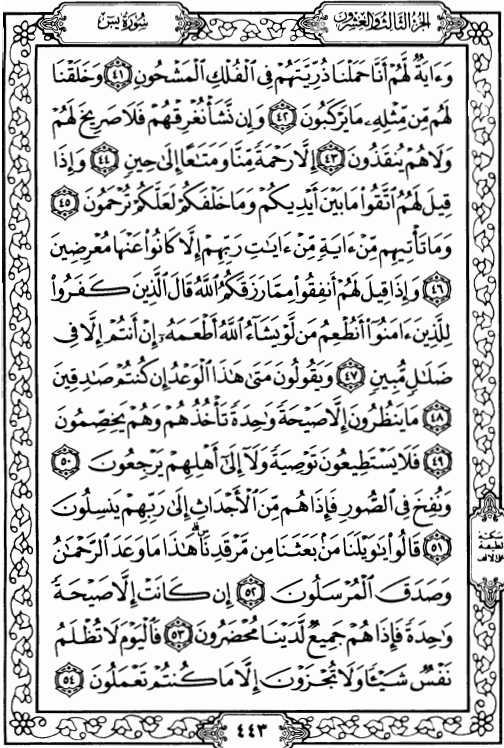 الجزء الثالث والعشرون
سورة يس
وَءَايَةٌ لَّهُمْ أَنَّا حَمَلْنَا ذُرِّيَّتَهُمْ فِى الْفُلْكِ الْمَشْحُونِ ٤١ وَخَلَقْنَا
لَهُم مِّن مِّثْلِهِۦ مَا يَرْكَبُونَ ٤٢ وَإِن نَّشَأْ نُغْرِقْهُمْ فَلَا صَرِيخَ لَهُمْ
وَلَا هُمْ يُنقَذُونَ ٤٣ إِلَّا رَحْمَةً مِّنَّا وَمَتَٰعًا إِلَىٰ حِينٍ ٤٤ وَإِذَا
قِيلَ لَهُمُ اتَّقُوا۟ مَا بَيْنَ أَيْدِيكُمْ وَمَا خَلْفَكُمْ لَعَلَّكُمْ تُرْحَمُونَ ٤٥
وَمَا تَأْتِيهِم مِّنْ ءَايَةٍ مِّنْ ءَايَٰتِ رَبِّهِمْ إِلَّا كَانُوا۟ عَنْهَا مُعْرِضِينَ
٤٦ وَإِذَا قِيلَ لَهُمْ أَنفِقُوا۟ مِمَّا رَزَقَكُمُ اللَّهُ قَالَ الَّذِينَ كَفَرُوا۟
لِلَّذِينَ ءَامَنُوٓا۟ أَنُطْعِمُ مَن لَّوْ يَشَآءُ اللَّهُ أَطْعَمَهُۥٓ إِنْ أَنتُمْ إِلَّا فِى
ضَلَٰلٍ مُّبِينٍ ٤٧ وَيَقُولُونَ مَتَىٰ هَٰذَا الْوَعْدُ إِن كُنتُمْ صَٰدِقِينَ
٤٨ مَا يَنظُرُونَ إِلَّا صَيْحَةً وَٰحِدَةً تَأْخُذُهُمْ وَهُمْ يَخِصِّمُونَ
٤٩ فَلَا يَسْتَطِيعُونَ تَوْصِيَةً وَلَآ إِلَىٰٓ أَهْلِهِمْ يَرْجِعُونَ ٥٠
وَنُفِخَ فِى الصُّورِ فَإِذَا هُم مِّنَ الْأَجْدَاثِ إِلَىٰ رَبِّهِمْ يَنسِلُونَ
٥١ قَالُوا۟ يَٰوَيْلَنَا مَنۢ بَعَثَنَا مِن مَّرْقَدِنَاۜ ۗ هَٰذَا مَا وَعَدَ الرَّحْمَٰنُ
وَصَدَقَ الْمُرْسَلُونَ ٥٢ إِن كَانَتْ إِلَّا صَيْحَةً
وَٰحِدَةً فَإِذَا هُمْ جَمِيعٌ لَّدَيْنَا مُحْضَرُونَ ٥٣ فَالْيَوْمَ لَا تُظْلَمُ
نَفْسٌ شَيْـًٔا وَلَا تُجْزَوْنَ إِلَّا مَا كُنتُمْ تَعْمَلُونَ ٥٤
سكتة
لطيفة
على الألف
٤٤٣